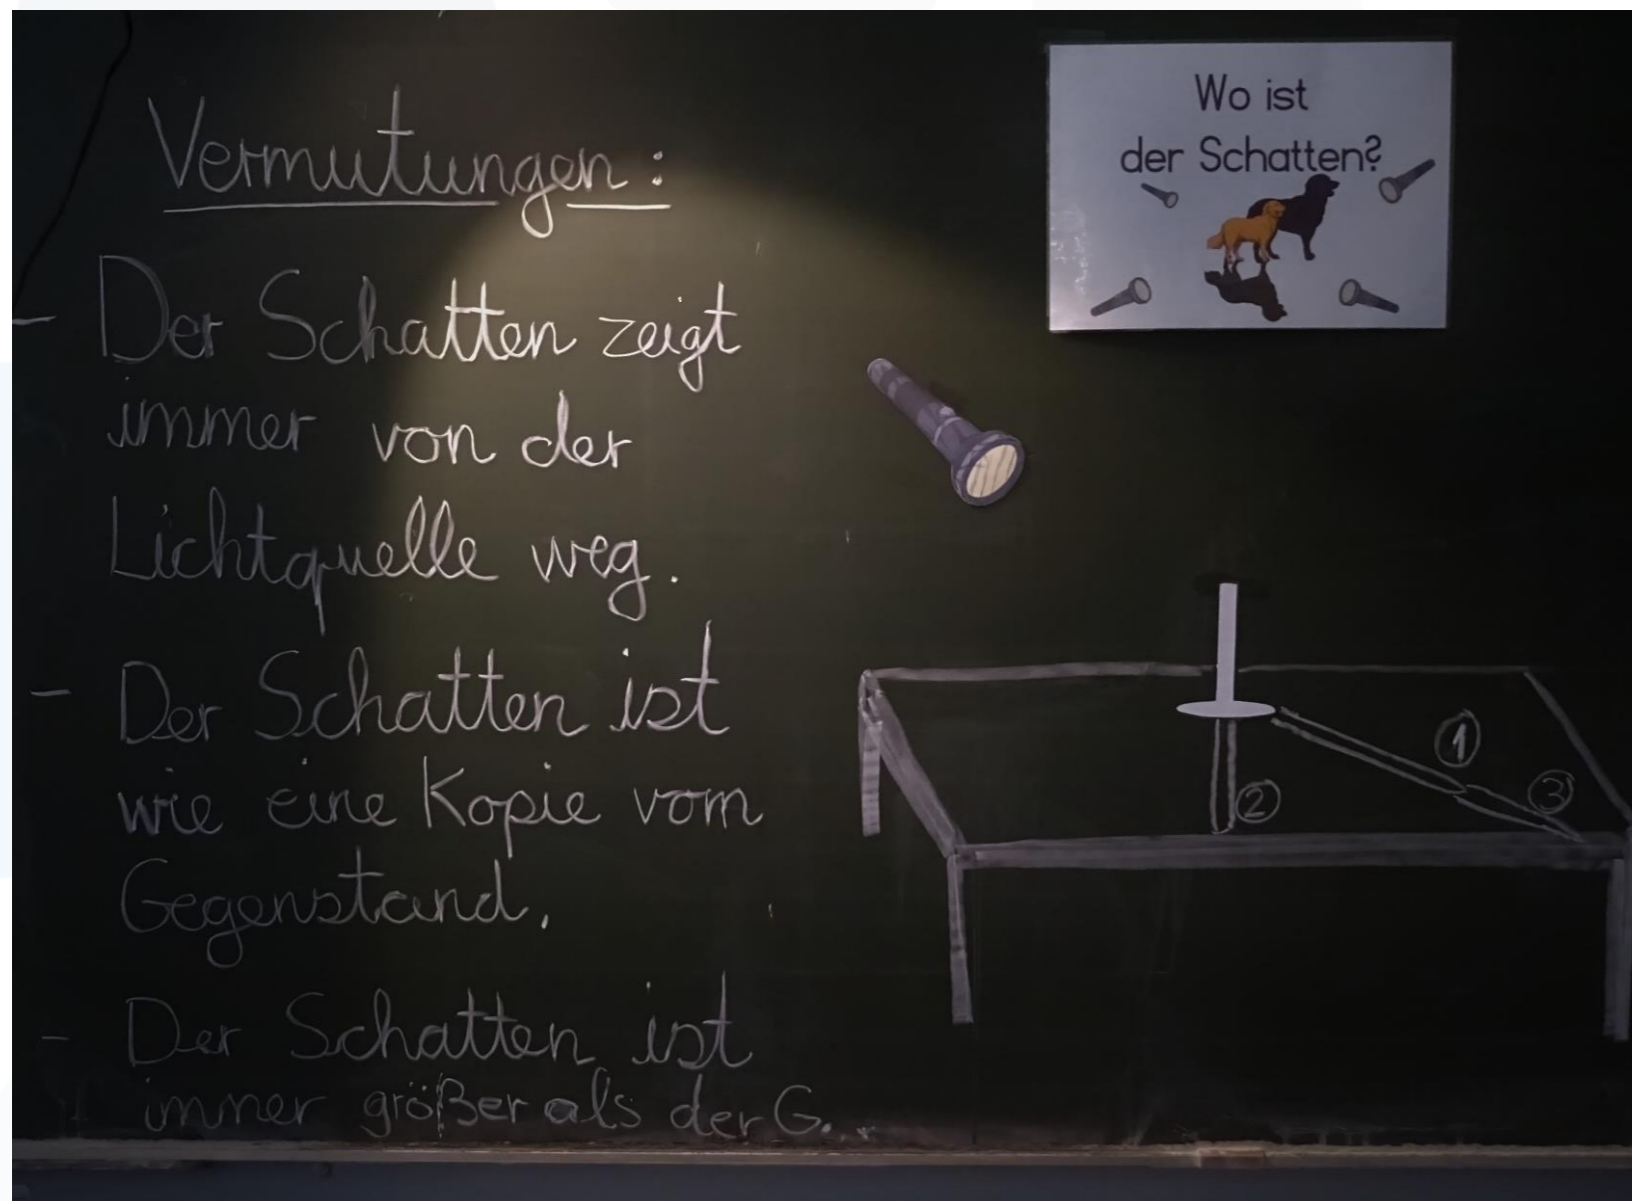 Vermutungen:
- Der Schatten zeigt
immer von der
Lichtquelle weg.
- Der Schatten ist
wie eine Kopie vom
Gegenstand.
- Der Schatten ist
immer größer als der G.
Wo ist
der Schatten?
1
2
3